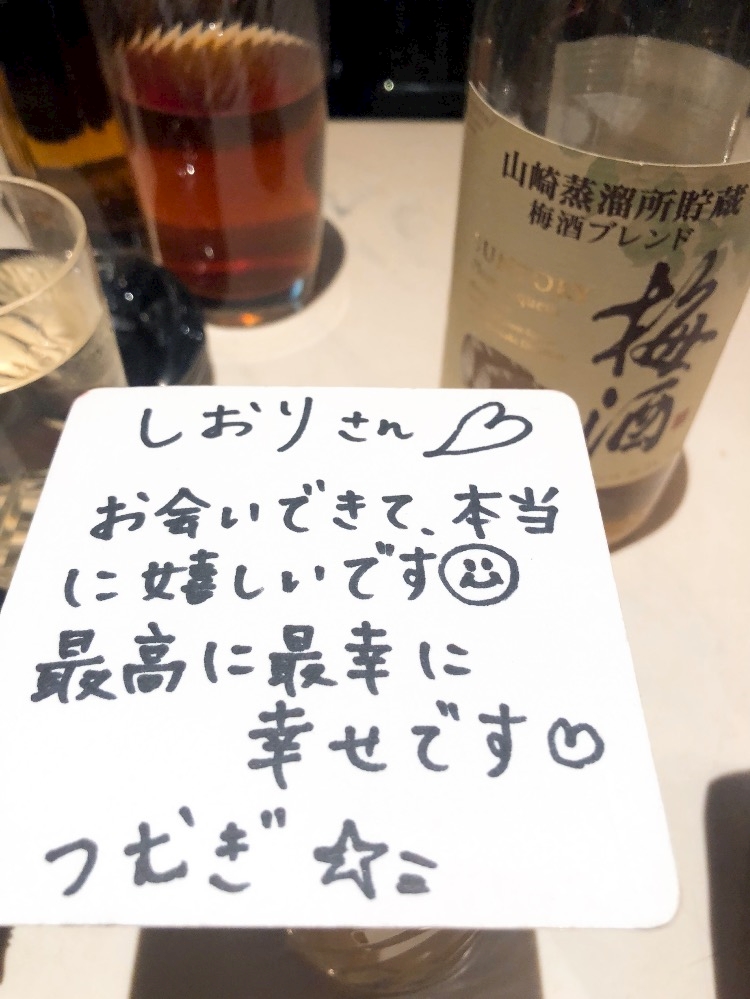 山崎蒸溜所貯蔵
梅酒ブレンド
SUNTORY
梅酒
しおりさん♡
お会いできて、本当
に嬉しいです☺
最高に最幸に
幸せです♡
つむぎ☆ミ